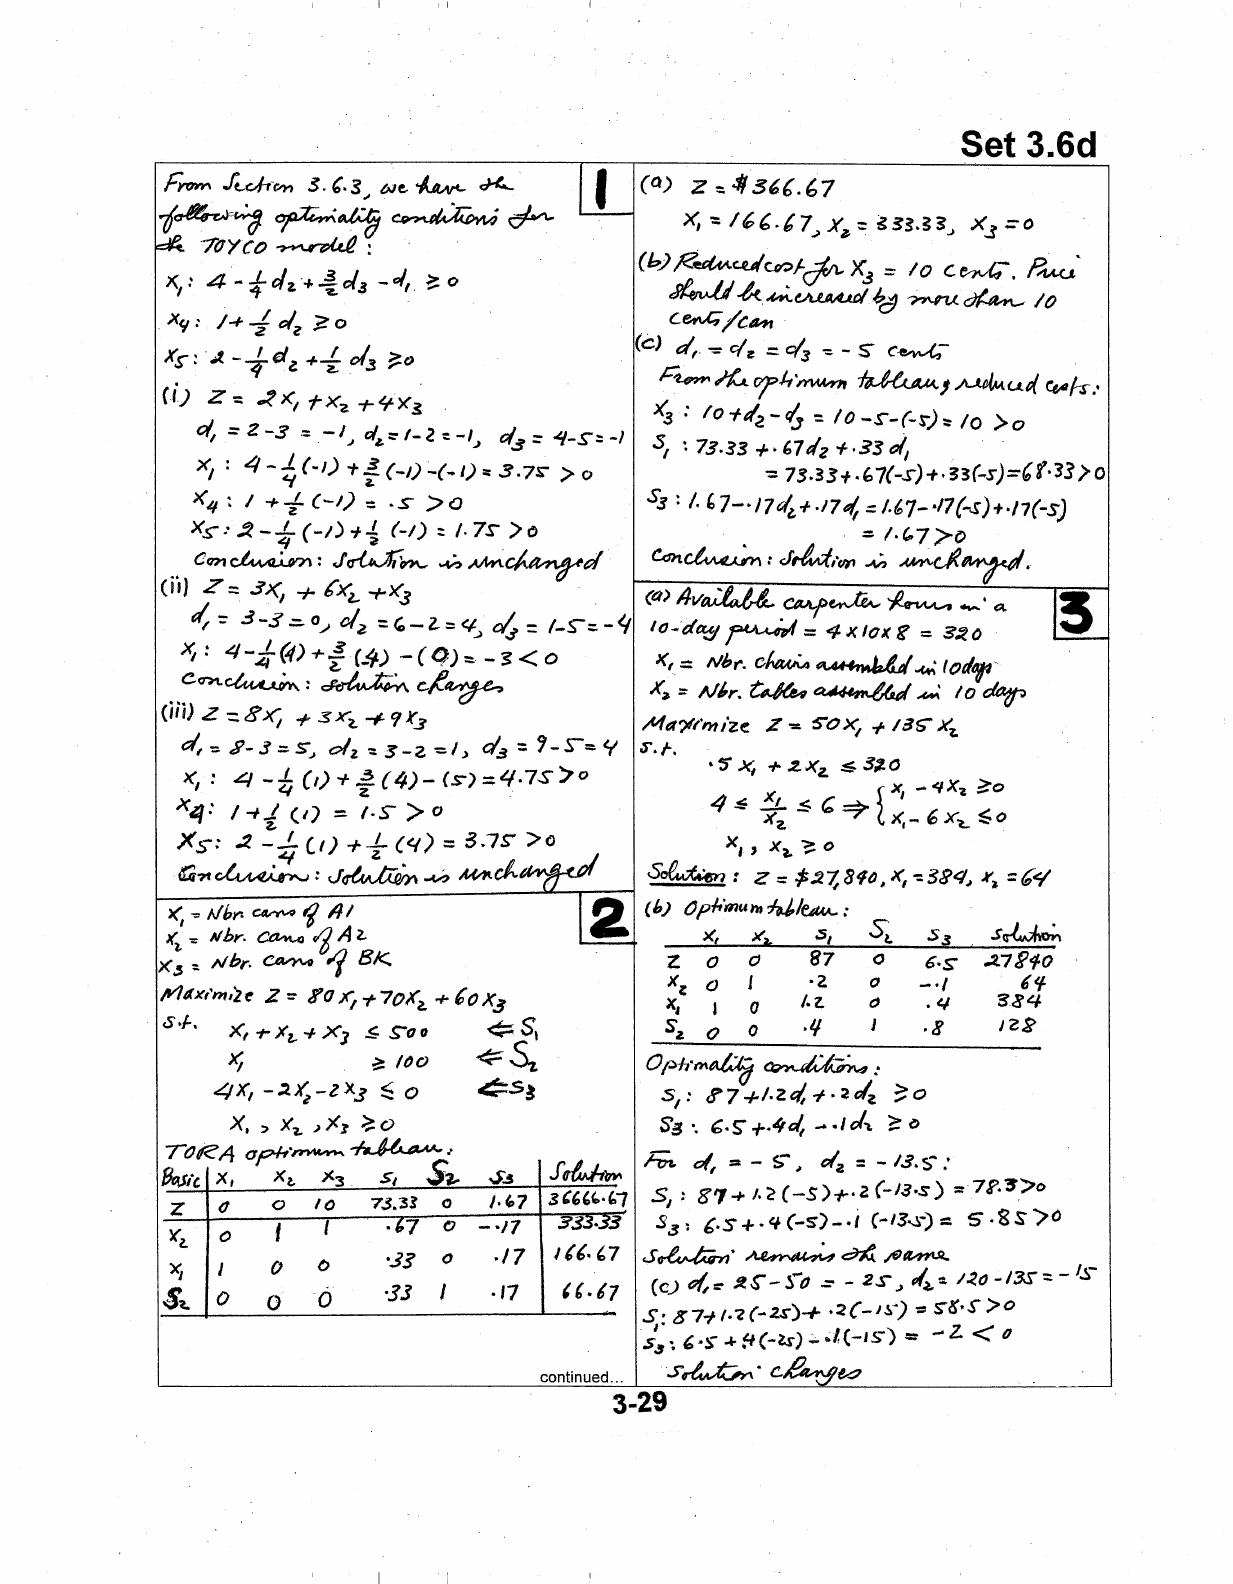 Set 3.6d
1
From Section 3.6.3, we have the
following optimality conditions for
the TOYCO model:
x₁: 4 - 1/4 d₂ + 3/2 d₃ - d₁ ≥ 0
x₄: 1 + 1/2 d₂ ≥ 0
x₅: 2 - 1/4 d₂ + 1/2 d₃ ≥ 0
(i) Z = 2x₁ + x₂ + 4x₃
d₁ = 2-3 = -1, d₂ = 1-2 = -1, d₃ = 4-5 = -1
x₁: 4 - 1/4 (-1) + 3/2 (-1) - (-1) = 3.75 > 0
x₄: 1 + 1/2 (-1) = .5 > 0
x₅: 2 - 1/4 (-1) + 1/2 (-1) = 1.75 > 0
Conclusion: Solution is unchanged
(ii) Z = 3x₁ + 6x₂ + x₃
d₁ = 3-3 = 0, d₂ = 6-2 = 4, d₃ = 1-5 = -4
x₁: 4 - 1/4 (4) + 3/2 (-4) - (0) = -3 < 0
Conclusion: solution changes
(iii) Z = 8x₁ + 3x₂ + 9x₃
d₁ = 8-3 = 5, d₂ = 3-2 = 1, d₃ = 9-5 = 4
x₁: 4 - 1/4 (1) + 3/2 (4) - (5) = 4.75 > 0
x₄: 1 + 1/2 (1) = 1.5 > 0
x₅: 2 - 1/4 (1) + 1/2 (4) = 3.75 > 0
Conclusion: Solution is unchanged
2
x₁ = Nbr. cans of A1
x₂ = Nbr. cans of A2
x₃ = Nbr. cans of BK
Maximize Z = 80x₁ + 70x₂ + 60x₃
s.t. x₁ + x₂ + x₃ ≤ 500 ⇐ S₁
x₁ ≥ 100 ⇐ S₂
4x₁ - 2x₂ - 2x₃ ≤ 0 ⇐ S₃
x₁, x₂, x₃ ≥ 0
TORA optimum tableau:
Basic x₁ x₂ x₃ s₁ S₂ s₃ Solution
Z 0 0 10 73.33 0 1.67 36666.67
x₂ 0 1 1 .67 0 -.17 333.33
x₁ 1 0 0 .33 0 .17 166.67
S₂ 0 0 0 .33 1 .17 66.67
continued...
(a) Z = $366.67
x₁ = 166.67, x₂ = 333.33, x₃ = 0
(b) Reduced cost for x₃ = 10 cents. Price
should be increased by more than 10
cents/can
(c) d₁ = d₂ = d₃ = -5 cents
From the optimum tableau, reduced costs:
x₃: 10 + d₂ - d₃ = 10 - 5 - (-5) = 10 > 0
S₁: 73.33 + .67d₂ + .33 d₁
= 73.33 + .67(-5) + .33(-5) = 68.33 > 0
S₃: 1.67 - .17d₂ + .17d₁ = 1.67 - .17(-5) + .17(-5)
= 1.67 > 0
Conclusion: Solution is unchanged.
3
(a) Available carpenter hours in a
10-day period = 4 x 10 x 8 = 320
x₁ = Nbr. chairs assembled in 10 days
x₂ = Nbr. tables assembled in 10 days
Maximize Z = 50x₁ + 135x₂
s.t.
.5x₁ + 2x₂ ≤ 320
4 ≤ x₁/x₂ ≤ 6 ⇒ { x₁ - 4x₂ ≥ 0
x₁ - 6x₂ ≤ 0
x₁, x₂ ≥ 0
Solution: Z = $27,840, x₁ = 384, x₂ = 64
(b) Optimum tableau:
x₁ x₂ s₁ S₂ s₃ Solution
Z 0 0 87 0 6.5 27840
x₂ 0 1 .2 0 -.1 64
x₁ 1 0 1.2 0 .4 384
S₂ 0 0 .4 1 .8 128
Optimality conditions:
S₁: 87 + 1.2d₁ + .2d₂ ≥ 0
S₃: 6.5 + .4d₁ - .1d₂ ≥ 0
For d₁ = -5, d₂ = -13.5:
S₁: 87 + 1.2(-5) + .2(-13.5) = 78.3 > 0
S₃: 6.5 + .4(-5) - .1(-13.5) = 5.85 > 0
Solution remains the same
(c) d₁ = 25-50 = -25, d₂ = 120-135 = -15
S₁: 87 + 1.2(-25) + .2(-15) = 58.5 > 0
S₃: 6.5 + .4(-25) - .1(-15) = -2 < 0
Solution changes
3-29